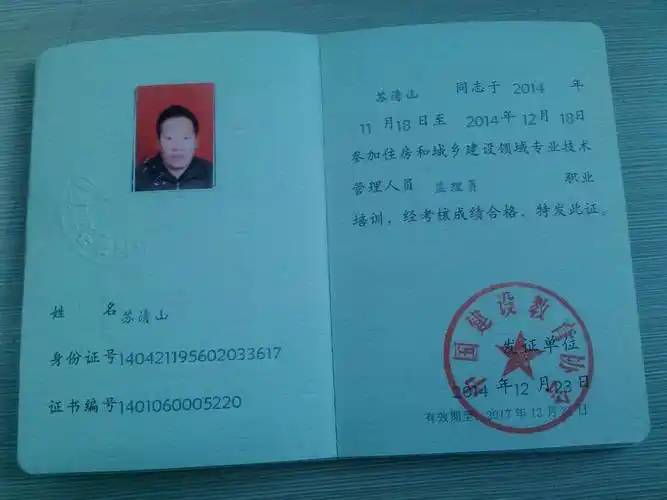 姓 名 苏清山
身份证号 140421195602033617
证书编号 1401060005220
苏清山 同志于 2014 年
11 月 18 日至 2014 年 12 月 18 日
参加住房和城乡建设领域专业技术
管理人员 监理员 职业
培训，经考核成绩合格，特发此证。
中国建设教育协会
发证单位
2014 年 12 月 23 日
有效期至：2017 年 12 月 日